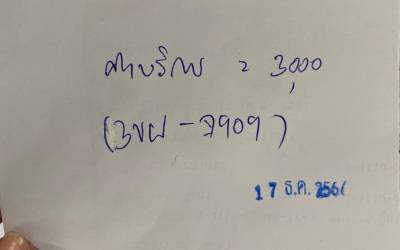 ค่าบริการ = 3,000
(3ขฝ - 7909)
17 ธ.ค. 2567